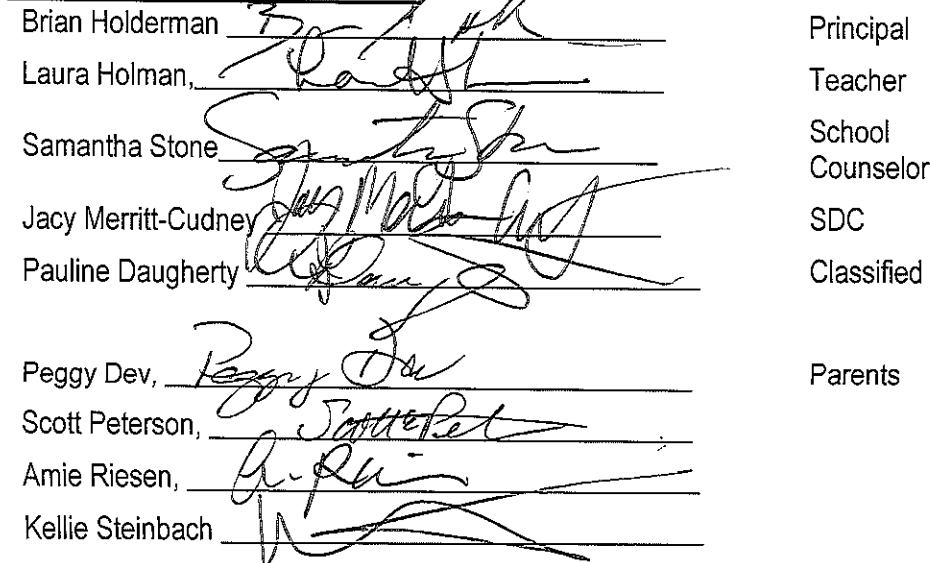 Brian Holderman Principal
Laura Holman, Teacher
Samantha Stone Samantha Stone School
Counselor
Jacy Merritt-Cudney SDC
Pauline Daugherty Classified
Peggy Dev, Peggy Dev Parents
Scott Peterson,
Amie Riesen,
Kellie Steinbach